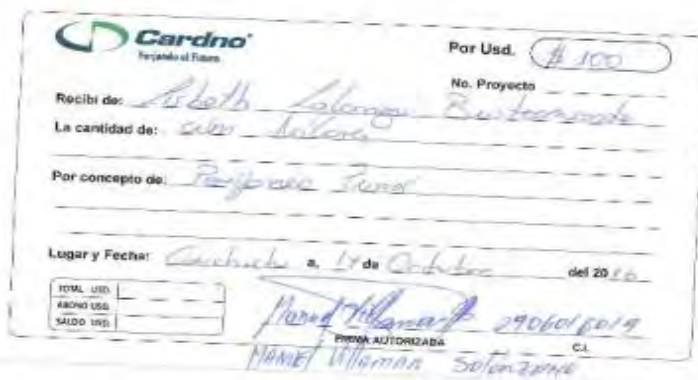 Cardno
Forjando el Futuro
Por Usd. # 100
No. Proyecto
Recibi de: Lisbeth Bustamante
La cantidad de: cien dolares
Por concepto de:
Lugar y Fecha: a, 14 de Octubre del 2016
TOTAL USD.
ABONO USD.
SALDO USD.
Manuel Villamar 2906016019
FIRMA AUTORIZADA C.I.
MANUEL VILLAMAR SOLORZANO